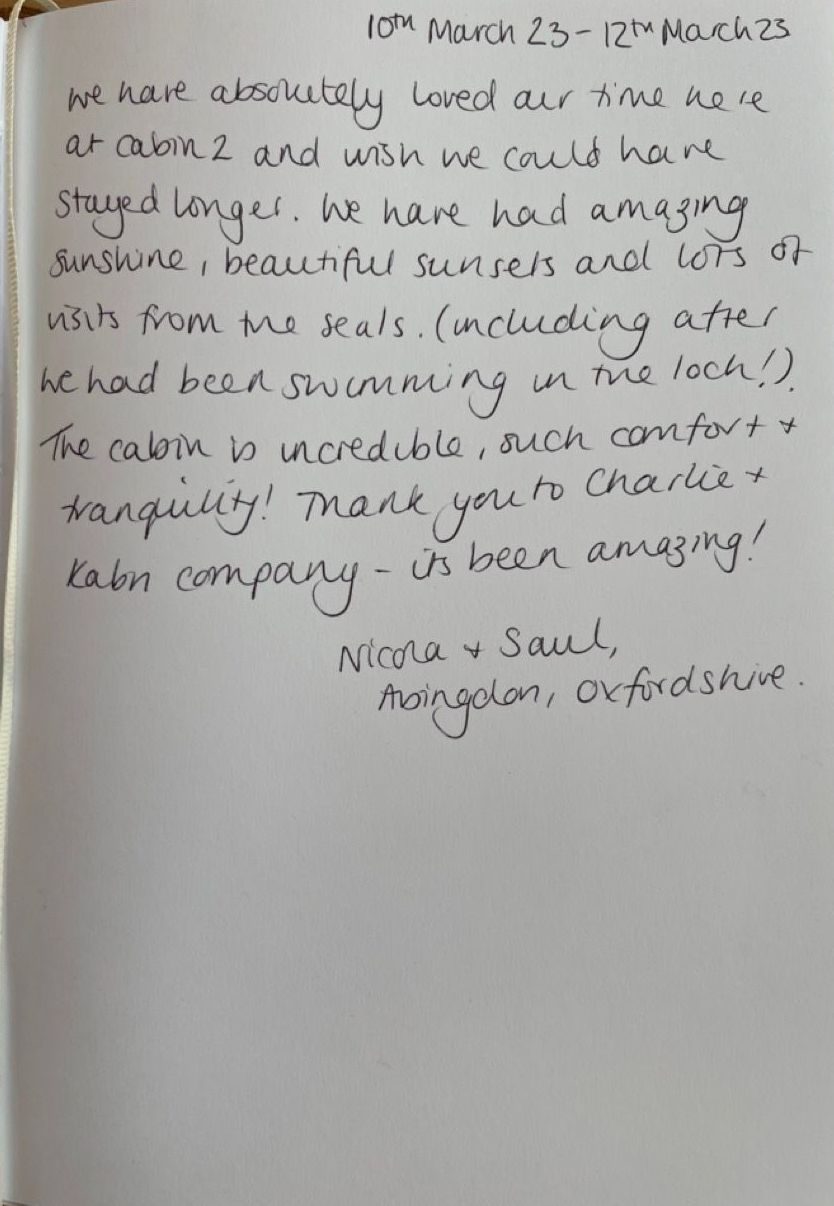 10th March 23 - 12th March 23
We have absolutely loved our time here
at cabin 2 and wish we could have
stayed longer. We have had amazing
sunshine, beautiful sunsets and lots of
visits from the seals. (including after
we had been swimming in the loch!).
The cabin is incredible, such comfort +
tranquility! Thank you to Charlie +
Kabn company - its been amazing!
Nicola + Saul,
Abingdon, Oxfordshire.